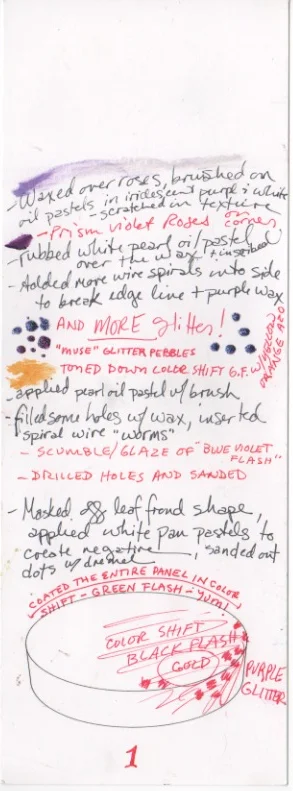 - Waxed over roses, brushed on
oil pastels in iridescent purple + white
- scratched in texture
- Prism violet Roses on corner
- rubbed white pearl oil pastel
over the wax + inscribed
- Added more wire spirals into side
to break edge line + purple wax
AND MORE glitter!
"MUSE" GLITTER PEBBLES
TONED DOWN COLOR SHIFT G.F. W/ YELLOW
ORANGE AZO
- applied pearl oil pastel w/ brush
- filled some holes w/ wax, inserted
spiral wire "worms"
- SCUMBLE/GLAZE OF "BLUE VIOLET
FLASH"
- DRILLED HOLES AND SANDED
- Masked off leaf frond shape,
applied white pan pastels to
create negative, sanded out
dots w/ dremel
COATED THE ENTIRE PANEL IN COLOR
SHIFT - GREEN FLASH - Yum!
COLOR SHIFT
BLACK FLASH
GOLD
PURPLE
GLITTER
1